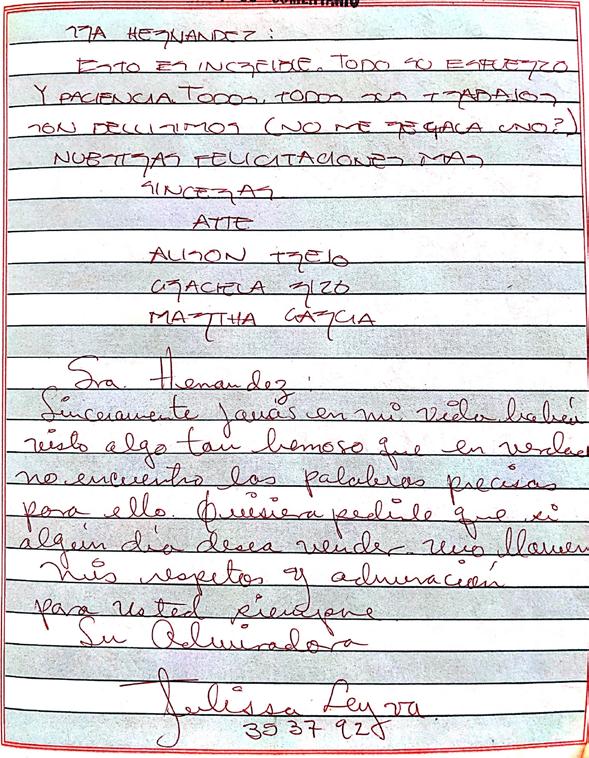 COMENTARIO
SRA HERNANDEZ:
ESTO ES INCREIBLE. TODO SU ESFUERZO
Y PACIENCIA. TODOS, TODOS SUS TRABAJOS
SON BELLISIMOS (NO ME REGALA UNO?)
NUESTRAS FELICITACIONES MAS
SINCERAS
ATTE
ALISON TREJO
GRACIELA RIZO
MARTHA GARCIA
Sra. Hernandez:
Sinceramente jamás en mi vida había
visto algo tan hermoso que en verdad
no encuentro las palabras precisas
para ello. Quisiera pedirle que si
algún día desea vender uno llamen
Mis respetos y admiración
para usted siempre
Su Admiradora
Julissa Leyva
35 37 928